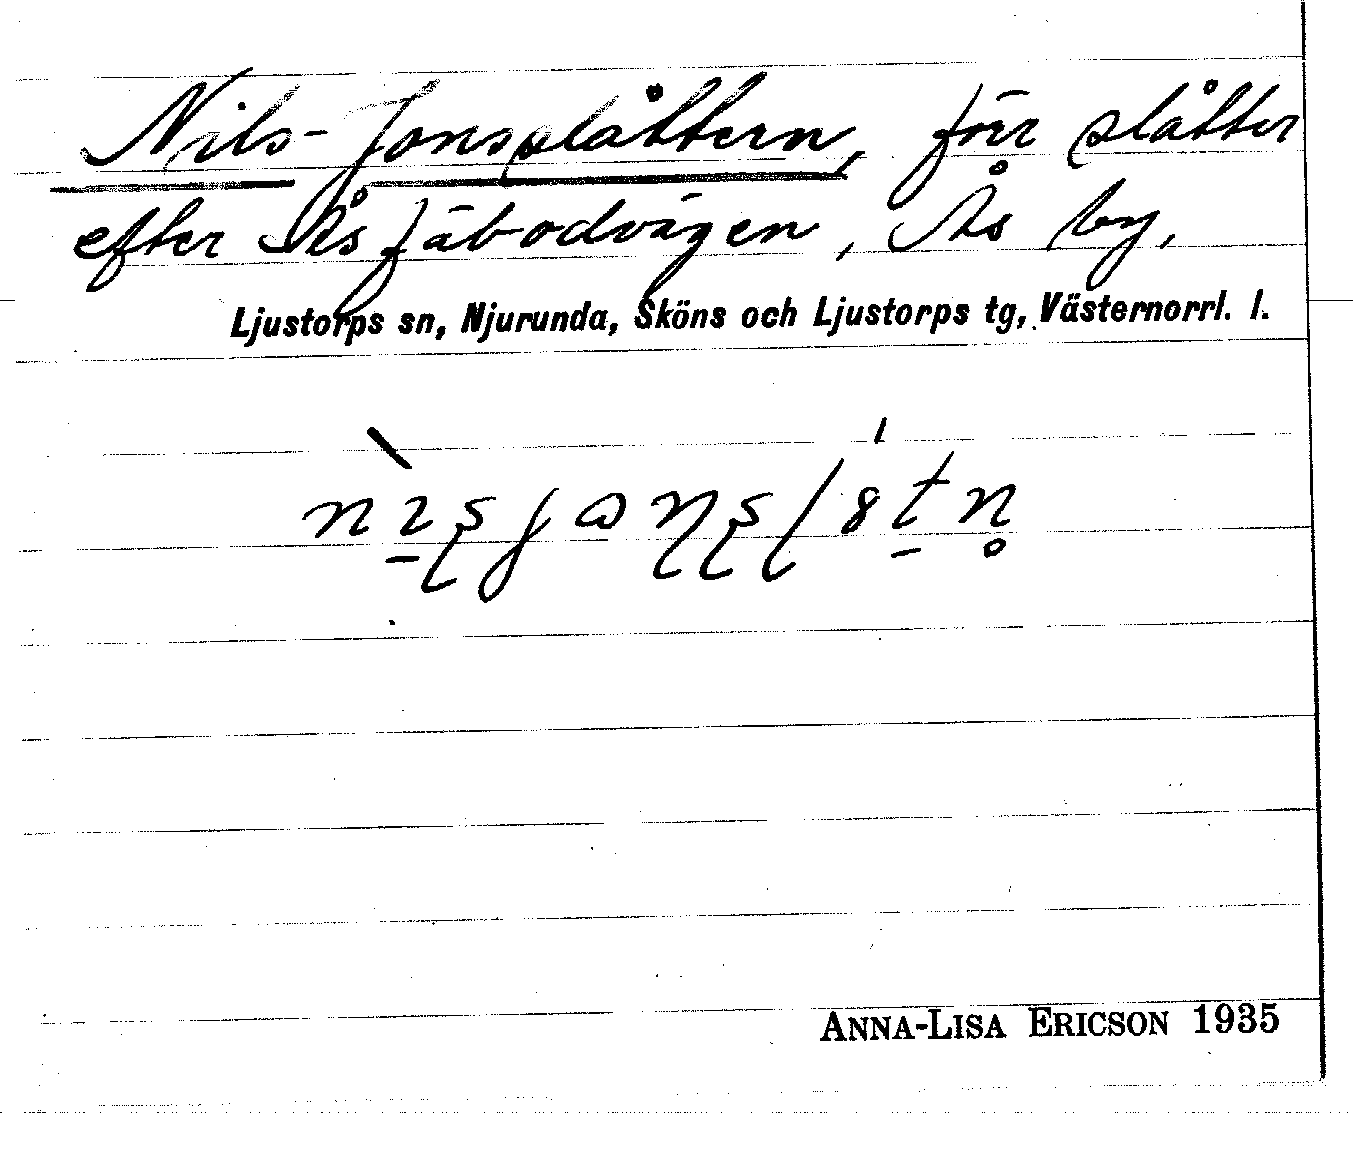 Nils-Jonsslåttern, förr slåtter
efter Ås fäbodvägen, Ås by,
Ljustorps sn, Njurunda, Sköns och Ljustorps tg, Västernorrl. l.
ANNA-LISA ERICSON 1935